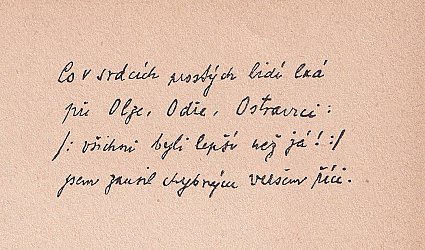 Co v srdcích prostých lidí lká
při Olze, Odře, Ostravici:
/: všichni byli lepší než já! :/
jsem zkusil chybným veršem říci.